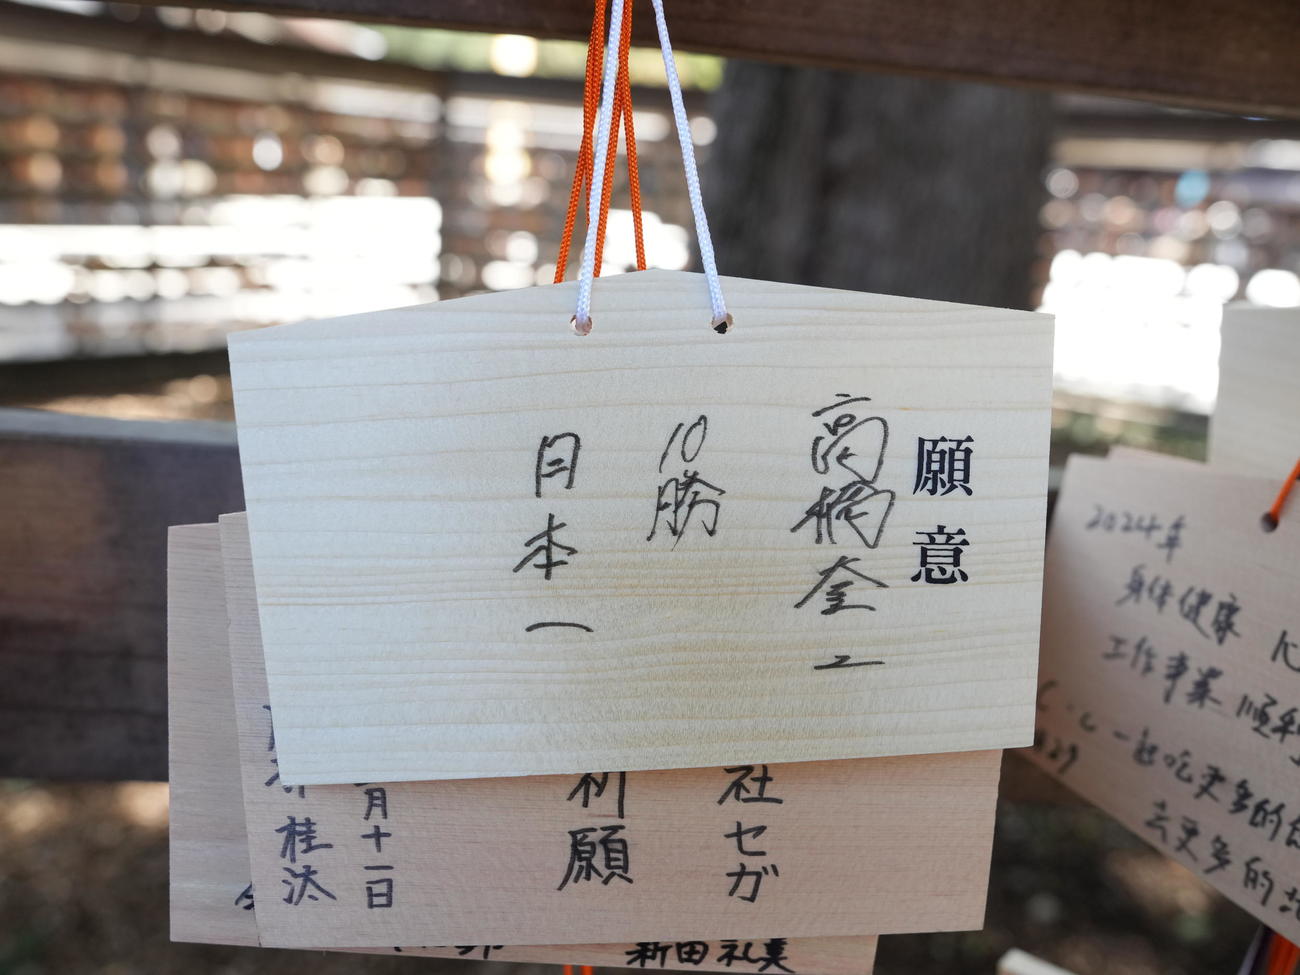 願意
高橋奎二
10勝
日本一
社セガ
祈願
月十一日
桂汰
新田礼美
2024年
身体健康 心
工作事業 順利
一起吃更多的
去更多的